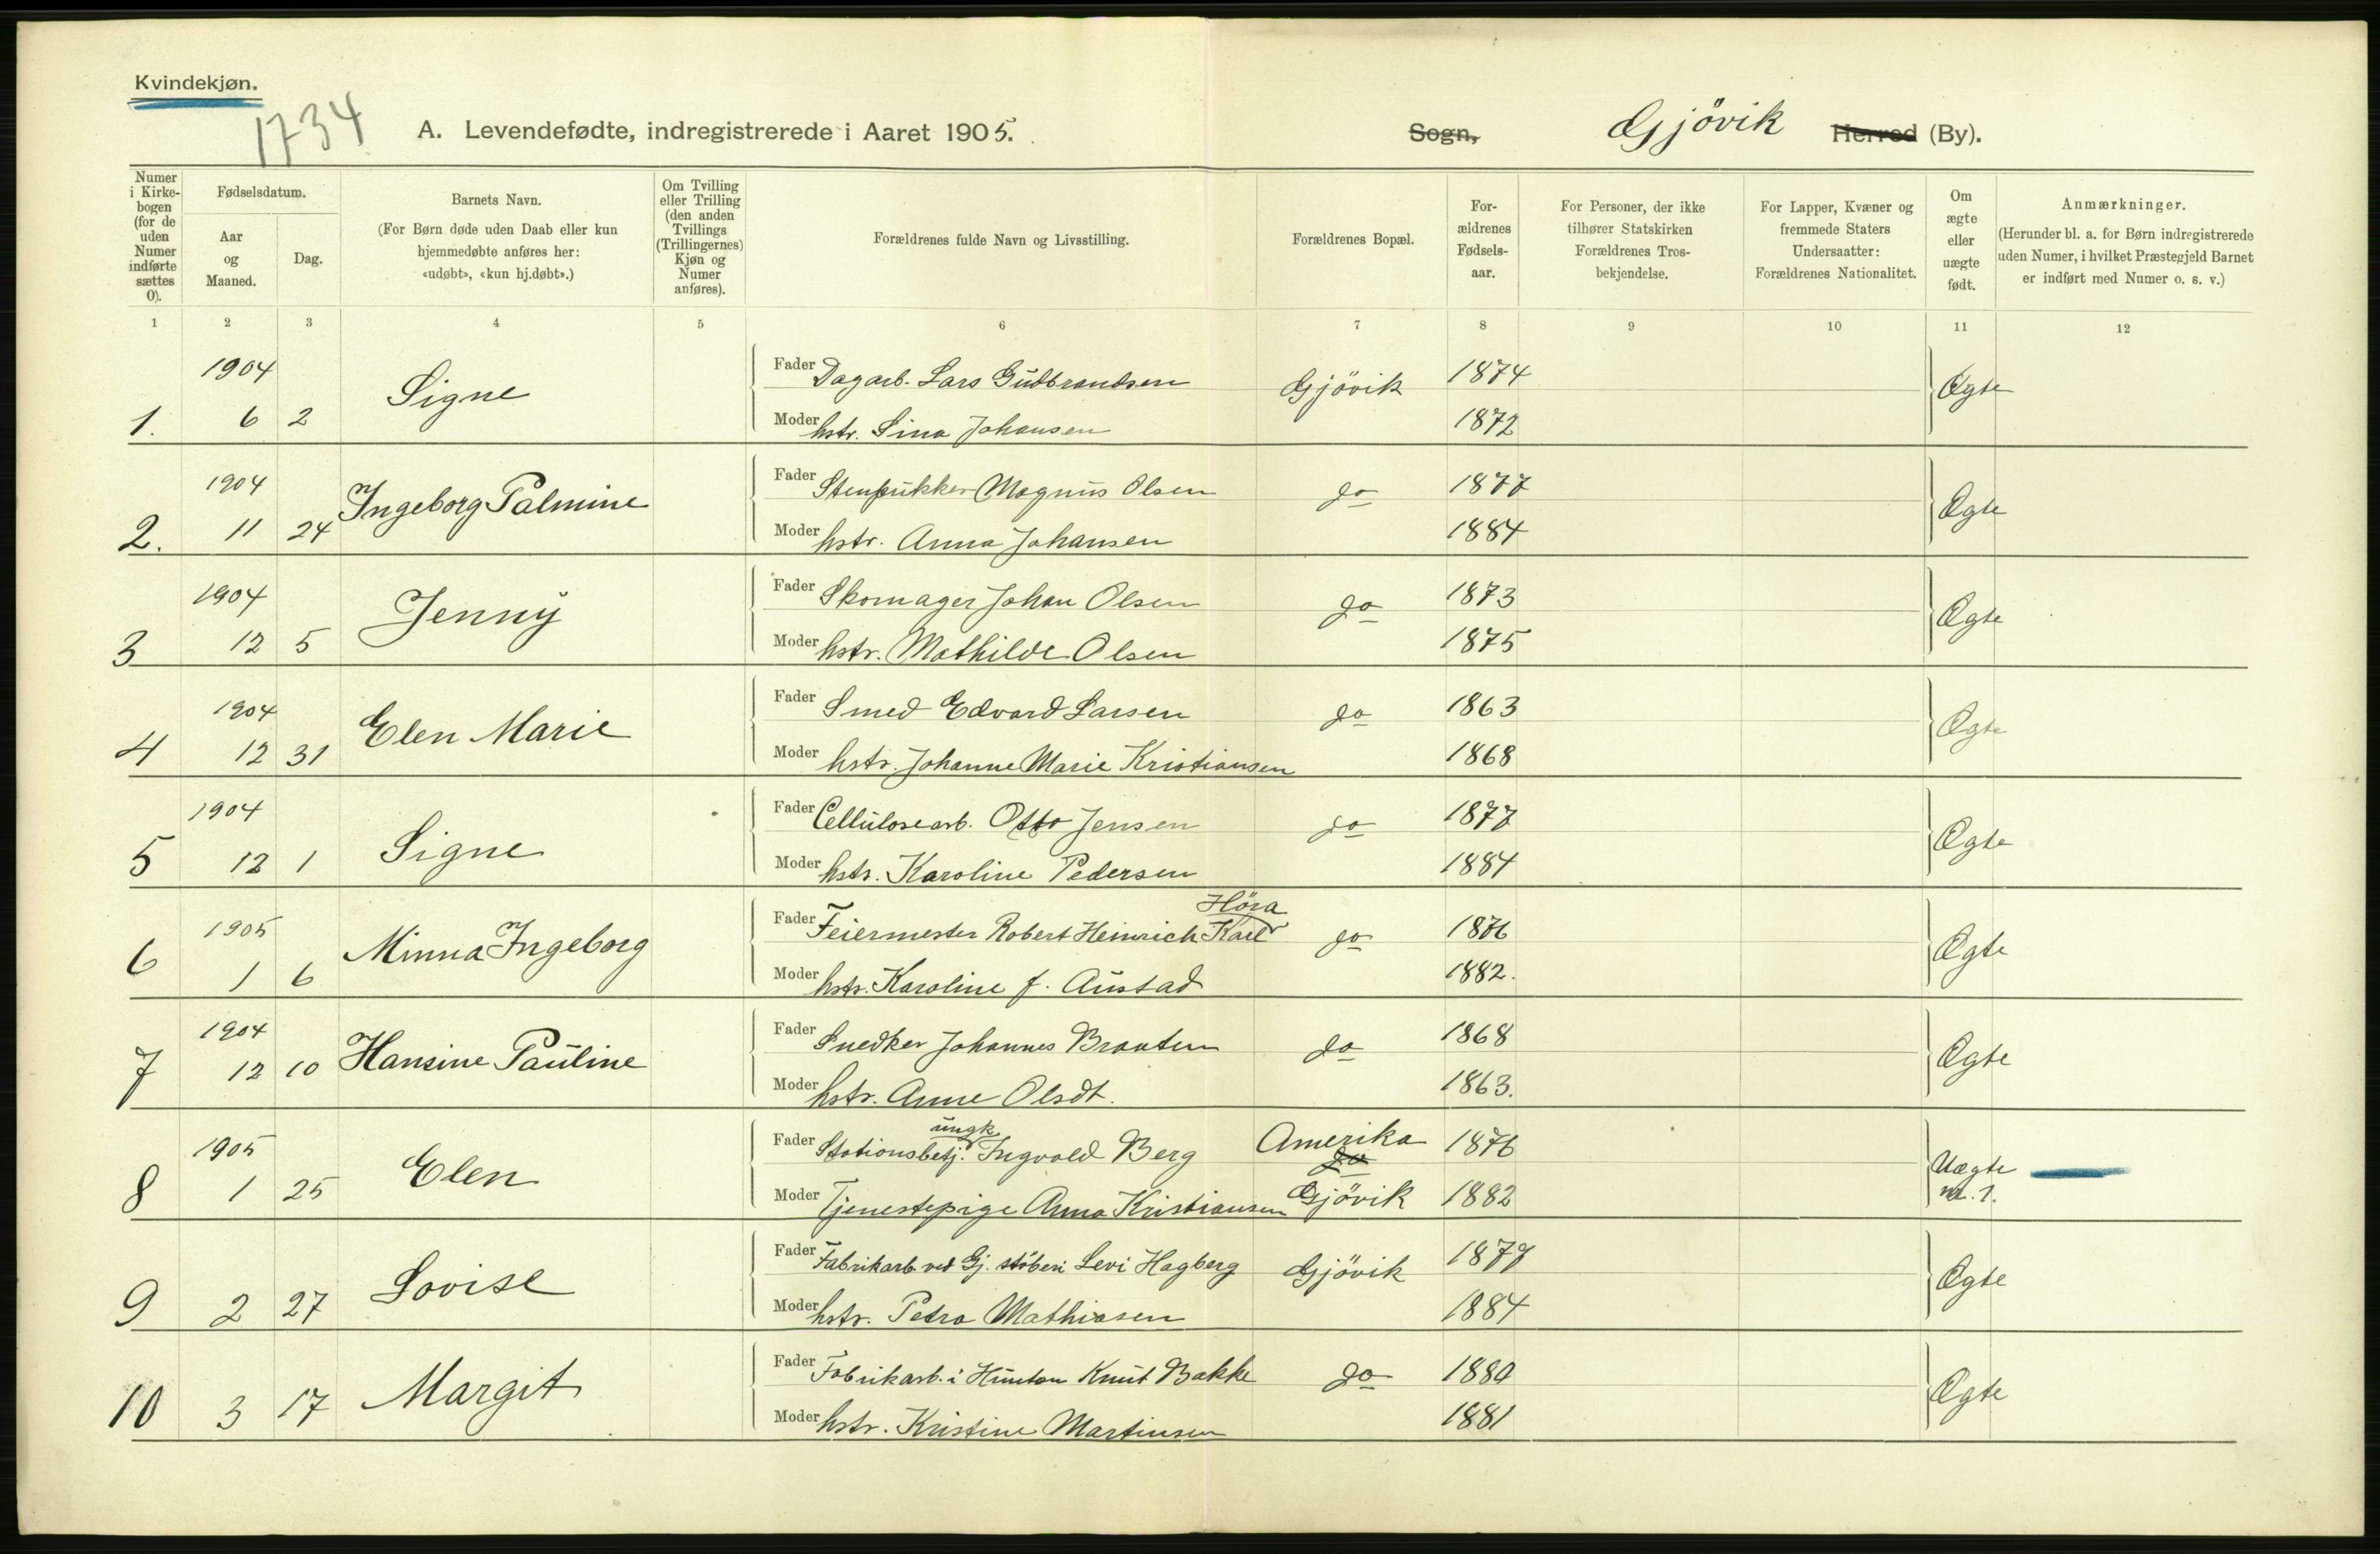 Kvindekjøn.
1734
A. Levendefødte, indregistrerede i Aaret 1905.
Sogn, Gjövik Herred (By).
Numer i Kirkebogen (for de uden Numer indførte sættes 0).
Fødselsdatum.
Aar og Maaned.
Dag.
Barnets Navn.
(For Børn døde uden Daab eller kun hjemmedøbte anføres her: «udøbt», «kun hj.døbt».)
Om Tvilling eller Trilling (den anden Tvillings (Trillingernes) Kjøn og Numer anføres).
Forældrenes fulde Navn og Livsstilling.
Forældrenes Bopæl.
For-ældrenes Fødsels-aar.
For Personer, der ikke tilhører Statskirken Forældrenes Tros-bekjendelse.
For Lapper, Kvæner og fremmede Staters Undersaatter: Forældrenes Nationalitet.
Om ægte eller uægte født.
Anmærkninger.
(Herunder bl. a. for Børn indregistrerede uden Numer, i hvilket Præstegjeld Barnet er indført med Numer o. s. v.)
1 2 3 4 5 6 7 8 9 10 11 12
1904 Signe Fader Dagarb. Lars Gudbrandsen Gjövik 1874 Ægte
1. 6 2 Moder hstr. Lina Johansen 1872
1904 Ingeborg Palmine Fader Stenpukker Magnus Olsen do 1877 Ægte
2. 11 24 Moder hstr. Anna Johansen 1884
1904 Jenny Fader Skomager Johan Olsen do 1873 Ægte
3 12 5 Moder hstr. Mathilde Olsen 1875
1904 Elen Marie Fader Smed Edvard Larsen do 1863 Ægte
4 12 31 Moder hstr. Johanne Marie Kristiansen 1868
1904 Signe Fader Cellulosearb. Otto Jensen do 1877 Ægte
5 12 1 Moder hstr. Karoline Pedersen 1884
Höra
1905 Minna Ingeborg Fader Feiermester Robert Heinrich Karl do 1876 Ægte
6 1 6 Moder hstr. Karoline f. Austad 1882.
1904 Hansine Pauline Fader Snedker Johannes Braaten do 1868 Ægte
7 12 10 Moder hstr. Anne Olsdt. 1863.
ungk.
1905 Elen Fader Stationsbetj. Ingvald Berg Amerika do 1876 Uægte
8 1 25 Moder Tjenestepige Anna Kristiansen Gjövik 1882 nr. 1.
Lovise Fader Fabrikarb. ved Gj. stöberi Levi Hagberg Gjövik 1877 Ægte
9 2 27 Moder hstr. Petra Mathiasen 1884
Margit Fader Fabrikarb. i Hunton Knut Bakke do 1880 Ægte
10 3 17 Moder hstr. Kristine Martinsen 1881